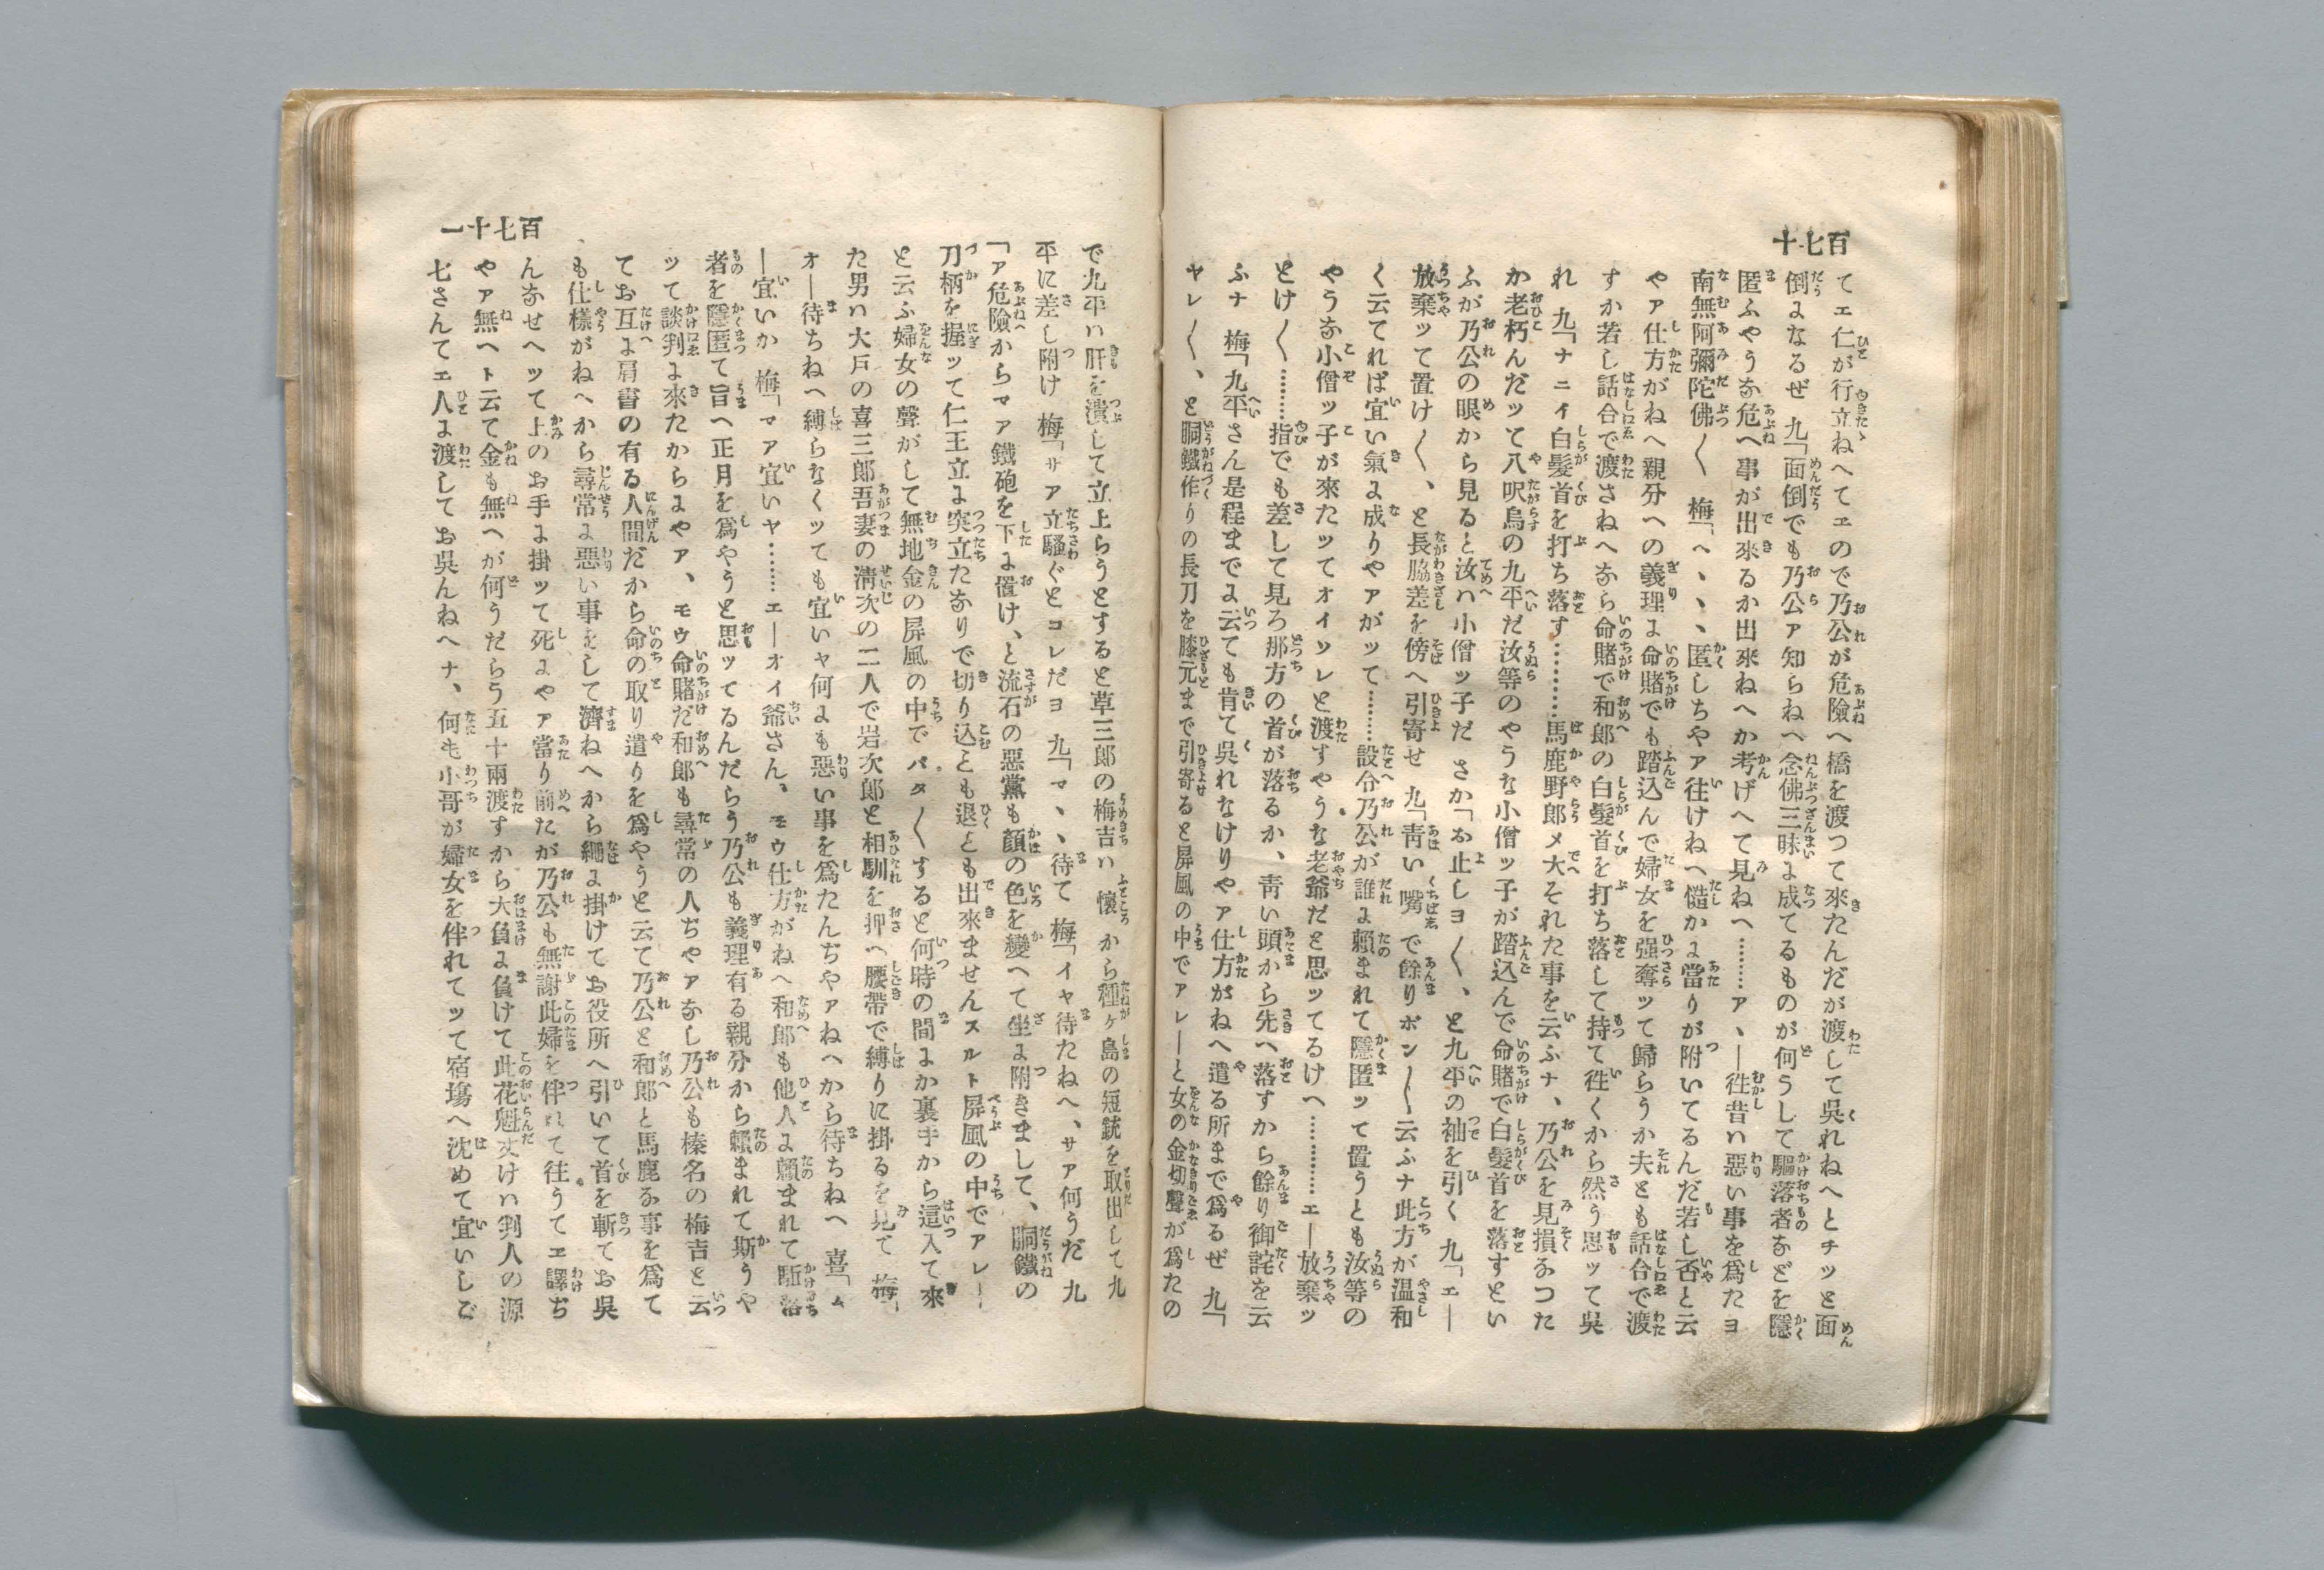 百七十
てエ仁が行立ねへてエので乃公が危險へ橋を渡つて來たんだが渡して吳れねへとチッと面
倒よなるぜ 九「面倒でも乃公ァ知らねへ念佛三昧よ成てるものが何うして驅落者などを隱
匿ふやうな危へ事が出來るか出來ねへか考げへて見ねへ………ア、―徃昔ハ惡い事を爲たヨ
南無阿彌陀佛〱 梅「へ、、、匿しちやア往けねへ慥かよ當りが附いてるんだ若し否と云
やア仕方がねへ親分への義理よ命賭でも踏込んで婦女を强奪ッて歸らうか夫とも話合で渡
すか若し話合で渡さねへなら命賭で和郎の白髮首を打ち落して持て徃くから然う思ッて吳
れ 九「ナニイ白髮首を打ち落す…………馬鹿野郎メ大それた事を云ふナ、乃公を見損なつた
か老朽んだッて八呎烏の九平だ汝等のやうな小僧ッ子が踏込んで命賭で白髮首を落すとい
ふが乃公の眼から見ると汝ハ小僧ッ子だ さか「お止しヨ〱、と九平の袖を引く 九「エ―
放棄ッて置け〱、と長脇差を傍へ引寄せ 九「靑い嘴で餘りポン〱云ふナ此方が温和
く云てれば宜い氣よ成りやァがッて…………設令乃公が誰よ賴まれて隱匿ッて置うとも汝等の
やうな小僧ッ子が來たッてオイソレと渡すやうな老爺だと思ッてるけへ…………エ―放棄ッ
とけ〱………指でも差して見ろ那方の首が落るか、靑い頭から先へ落すから餘り御詫を云
ふナ 梅「九平さん是程までよ云ても肯て吳れなけりやア仕方がねへ遣る所まで爲るぜ 九「
ヤレ〱、と胴鐵作りの長刀を膝元まで引寄ると屏風の中でァレ―と女の金切聲が爲たの
百七十一
で九平ハ肝を潰して立上らうとすると草三郎の梅吉ハ懷から種ヶ島の短銃を取出して九
平に差し附け 梅「サア立騷ぐとコレだヨ 九「マ、、待て 梅「イヤ待たねへ、サア何うだ 九
「ア危險からマア鐵砲を下よ置け、と流石の惡黨も顏の色を變へて坐よ附きまして、胴鐵の
刀柄を握ッて仁王立よ突立たなりで切り込とも退とも出來ませんスルト屏風の中でアレ―
と云ふ婦女の聲がして無地金の屏風の中でバタ〱すると何時の間よか裏手から這入て來
た男ハ大戶の喜三郎吾妻の淸次の二人で岩次郎と相馴を押へ腰帶で縛りに掛るを見て 梅「
オ―待ちねへ縛らなくッても宜いヤ何よも惡い事を爲たんぢやァねへから待ちねへ 喜「ム
―宜いか 梅「マア宜いヤ………エ―オイ爺さん、モウ仕方がねへ和郎も他人よ賴まれて駈落
者を隱匿て旨へ正月を爲やうと思ッてるんだらう乃公も義理有る親分から賴まれて斯うや
ッて談判よ來たからよやア、モウ命賭だ和郎も尋常の人ぢやアなし乃公も榛名の梅吉と云
てお互よ肩書の有る人間だから命の取り遣りを爲やうと云て乃公と和郎と馬鹿な事を爲て
も仕樣がねへから尋常よ惡い事をして濟ねへから繩よ掛けてお役所へ引いて首を斬てお吳
んなせへッて上のお手よ掛ッて死よやア當り前たが乃公も無謝此婦を伴れて往うてエ譯ぢ
やア無へト云て金も無へが何うだらう五十兩渡すから大負よ負けて此花魁丈けハ判人の源
七さんてエ人よ渡してお吳んねへナ、何も小哥が婦女を伴れてッて宿塲へ沈めて宜いしご